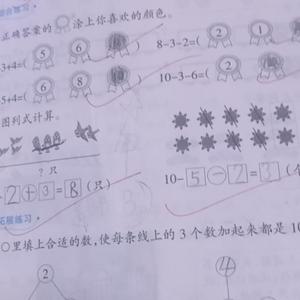 正确答案的 涂上你喜欢的颜色。
3+4=( 5 6 )
8-3-2=( 2 1
5+4=( 6 8 )
10-3-6=( 2
图列式计算。
? 只
2+3=8(只)
10-5-2=3(
拓展练习
○里填上合适的数,使每条线上的 3 个数加起来都是 10
2
4